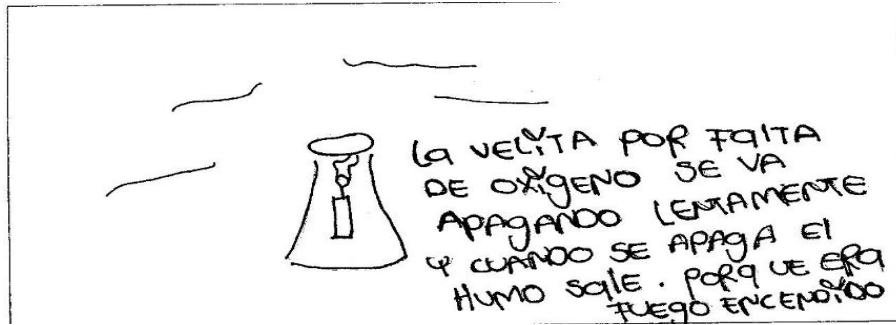 La VELITA POR FalTA
DE OXIGENO SE VA
APAGANDO LENTAMENTE
Y CUANDO SE APAGA El
HUMO SalE. PORQUE ERA
FUEGO ENCENDIDO